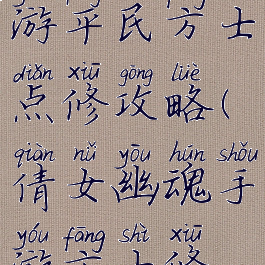 游平民方士
diǎn xiū gōng lüè
点修攻略(
qiàn nǚ yōu hún shǒu
倩女幽魂手
yóu fāng shì xiū
游方士修